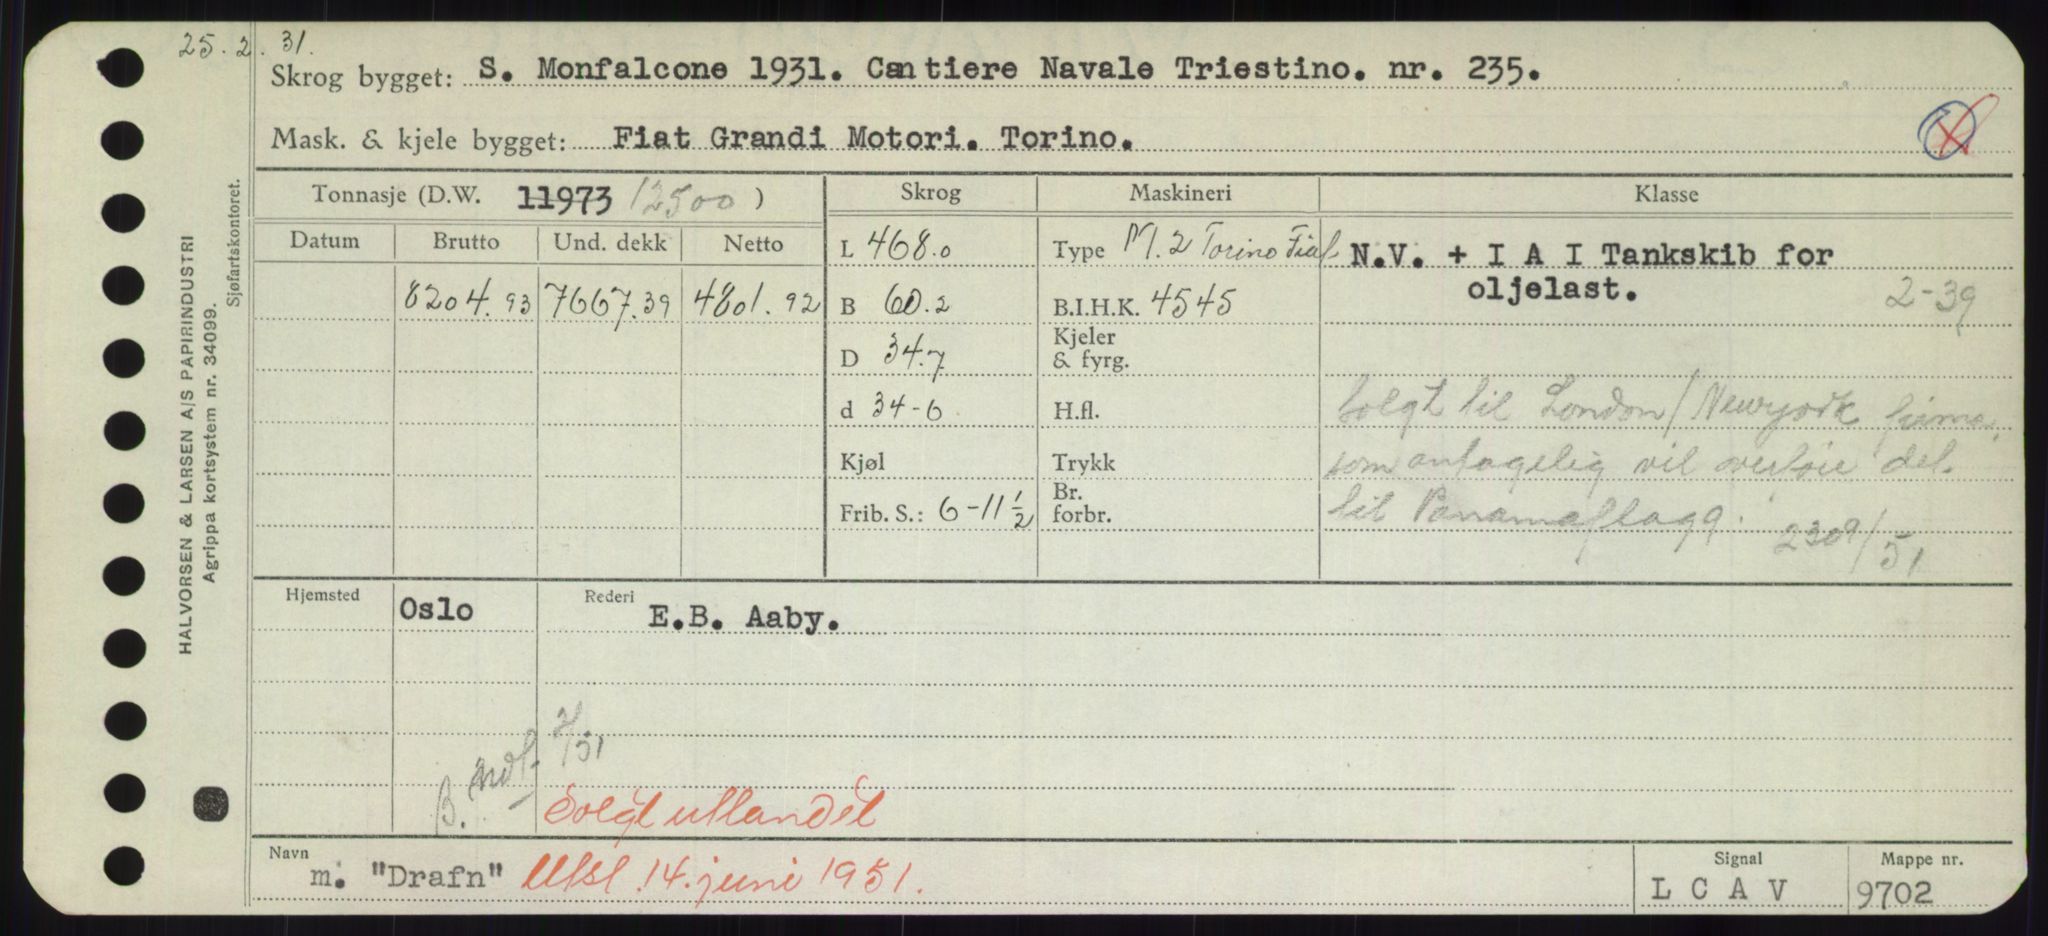 25.2.31.
Skrog bygget: S. Monfalcone 1931. Cantiere Navale Triestino. nr. 235.
Mask. & kjele bygget: Fiat Grandi Motori. Torino.
Tonnasje (D.W. 11973 12500 )
Skrog
Maskineri
Klasse
Datum Brutto Und. dekk Netto
8204.93 7667.39 4801.92
L 468.0
B 60.2
D 34.7
d 34-6
Kjøl
Frib. S.: 6-11 1/2
Type M. 2 Torino Fiat
B.I.H.K. 4545
Kjeler
& fyrg.
H.fl.
Trykk
Br.
forbr.
N.V. + I A I Tankskib for
oljelast.
2-39
Solgt til London/Newyork firma,
som antagelig vil overføre det
til Panamaflagg.
2309/51
Hjemsted Oslo
Rederi E.B. Aaby.
B.
/51
Solgt utlandet
Navn m. "Drafn" Utsl. 14. juni 1951.
Signal
L C A V
Mappe nr.
9702
HALVORSEN & LARSEN A/S PAPIRINDUSTRI
Agrippa kortsystem nr. 34099.
Sjøfartskontoret.